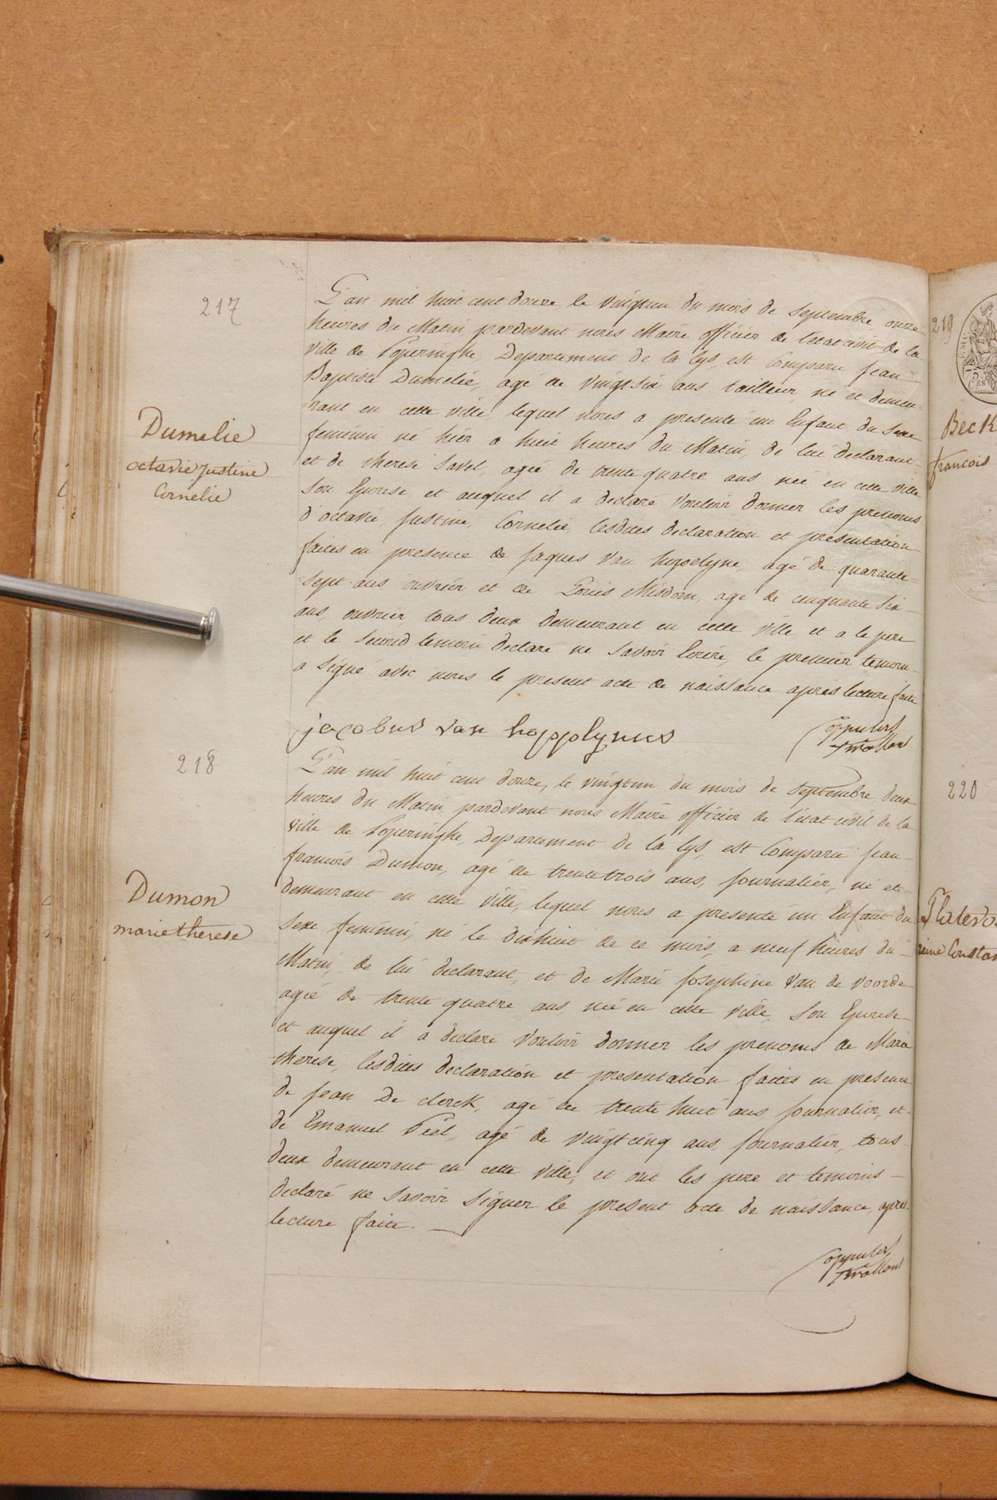 217
Dumelie
octavie Justine
Cornelie
L'an mil huit cent douze le vingtun du mois de Septembre onze
heures du Matin pardevant nous Maire officier de l'etat civil de la
Ville de Poperinghe, Departement de la Lys, est Comparu Jean
Baptiste Dumelie, agé de vingt six ans tailleur né et demeu-
rant en cette ville lequel nous a presenté un Enfant du Sexe
feminin né hier a huit heures du Matin de lui declarant
et de therese agée de trente quatre ans née en cette ville
Son Epouse et auquel il a declaré Vouloir donner les prenoms
d'octavie Justine Cornelie, lesdites declaration et presentation
faites en presence de Jaques Van agé de quarante
Sept ans ouvrier et de Louis agé de cinquante Six
ans, ouvrier tous deux demeurant en cette ville et a le pere
et le Second temoin declaré ne Savoir Ecrire, le premier temoin
a Signé avec nous le present acte de naissance apres lecture faite
jacobus van
218
Dumon
marie therese
L'an mil huit cent douze, le vingtun du mois de Septembre deux
heures du Matin pardevant nous Maire officier de l'etat civil de la
Ville de Poperinghe, Departement de la Lys, est Comparu Jean
francois Dumon, agé de trente trois ans, Journalier, né et
demeurant en cette Ville, lequel nous a presenté un Enfant du
Sexe feminin, né le dixhuit de ce mois, a neuf heures du
Matin, de lui declarant, et de Marie Josephine Van de Voorde
agée de trente quatre ans née en cette Ville, Son Epouse
et auquel il a declaré Vouloir donner les prenoms de Marie
therese, lesdites declaration et presentation faites en presence
de Jean De clerck, agé de trente huit ans Journalier, et
de Emanuel agé de vingt cinq ans, Journalier, tous
deux demeurant en cette Ville, et ont les pere et temoins
declaré ne Savoir Signer le present acte de naissance, apres
lecture faite.
219
Beck
francois
220